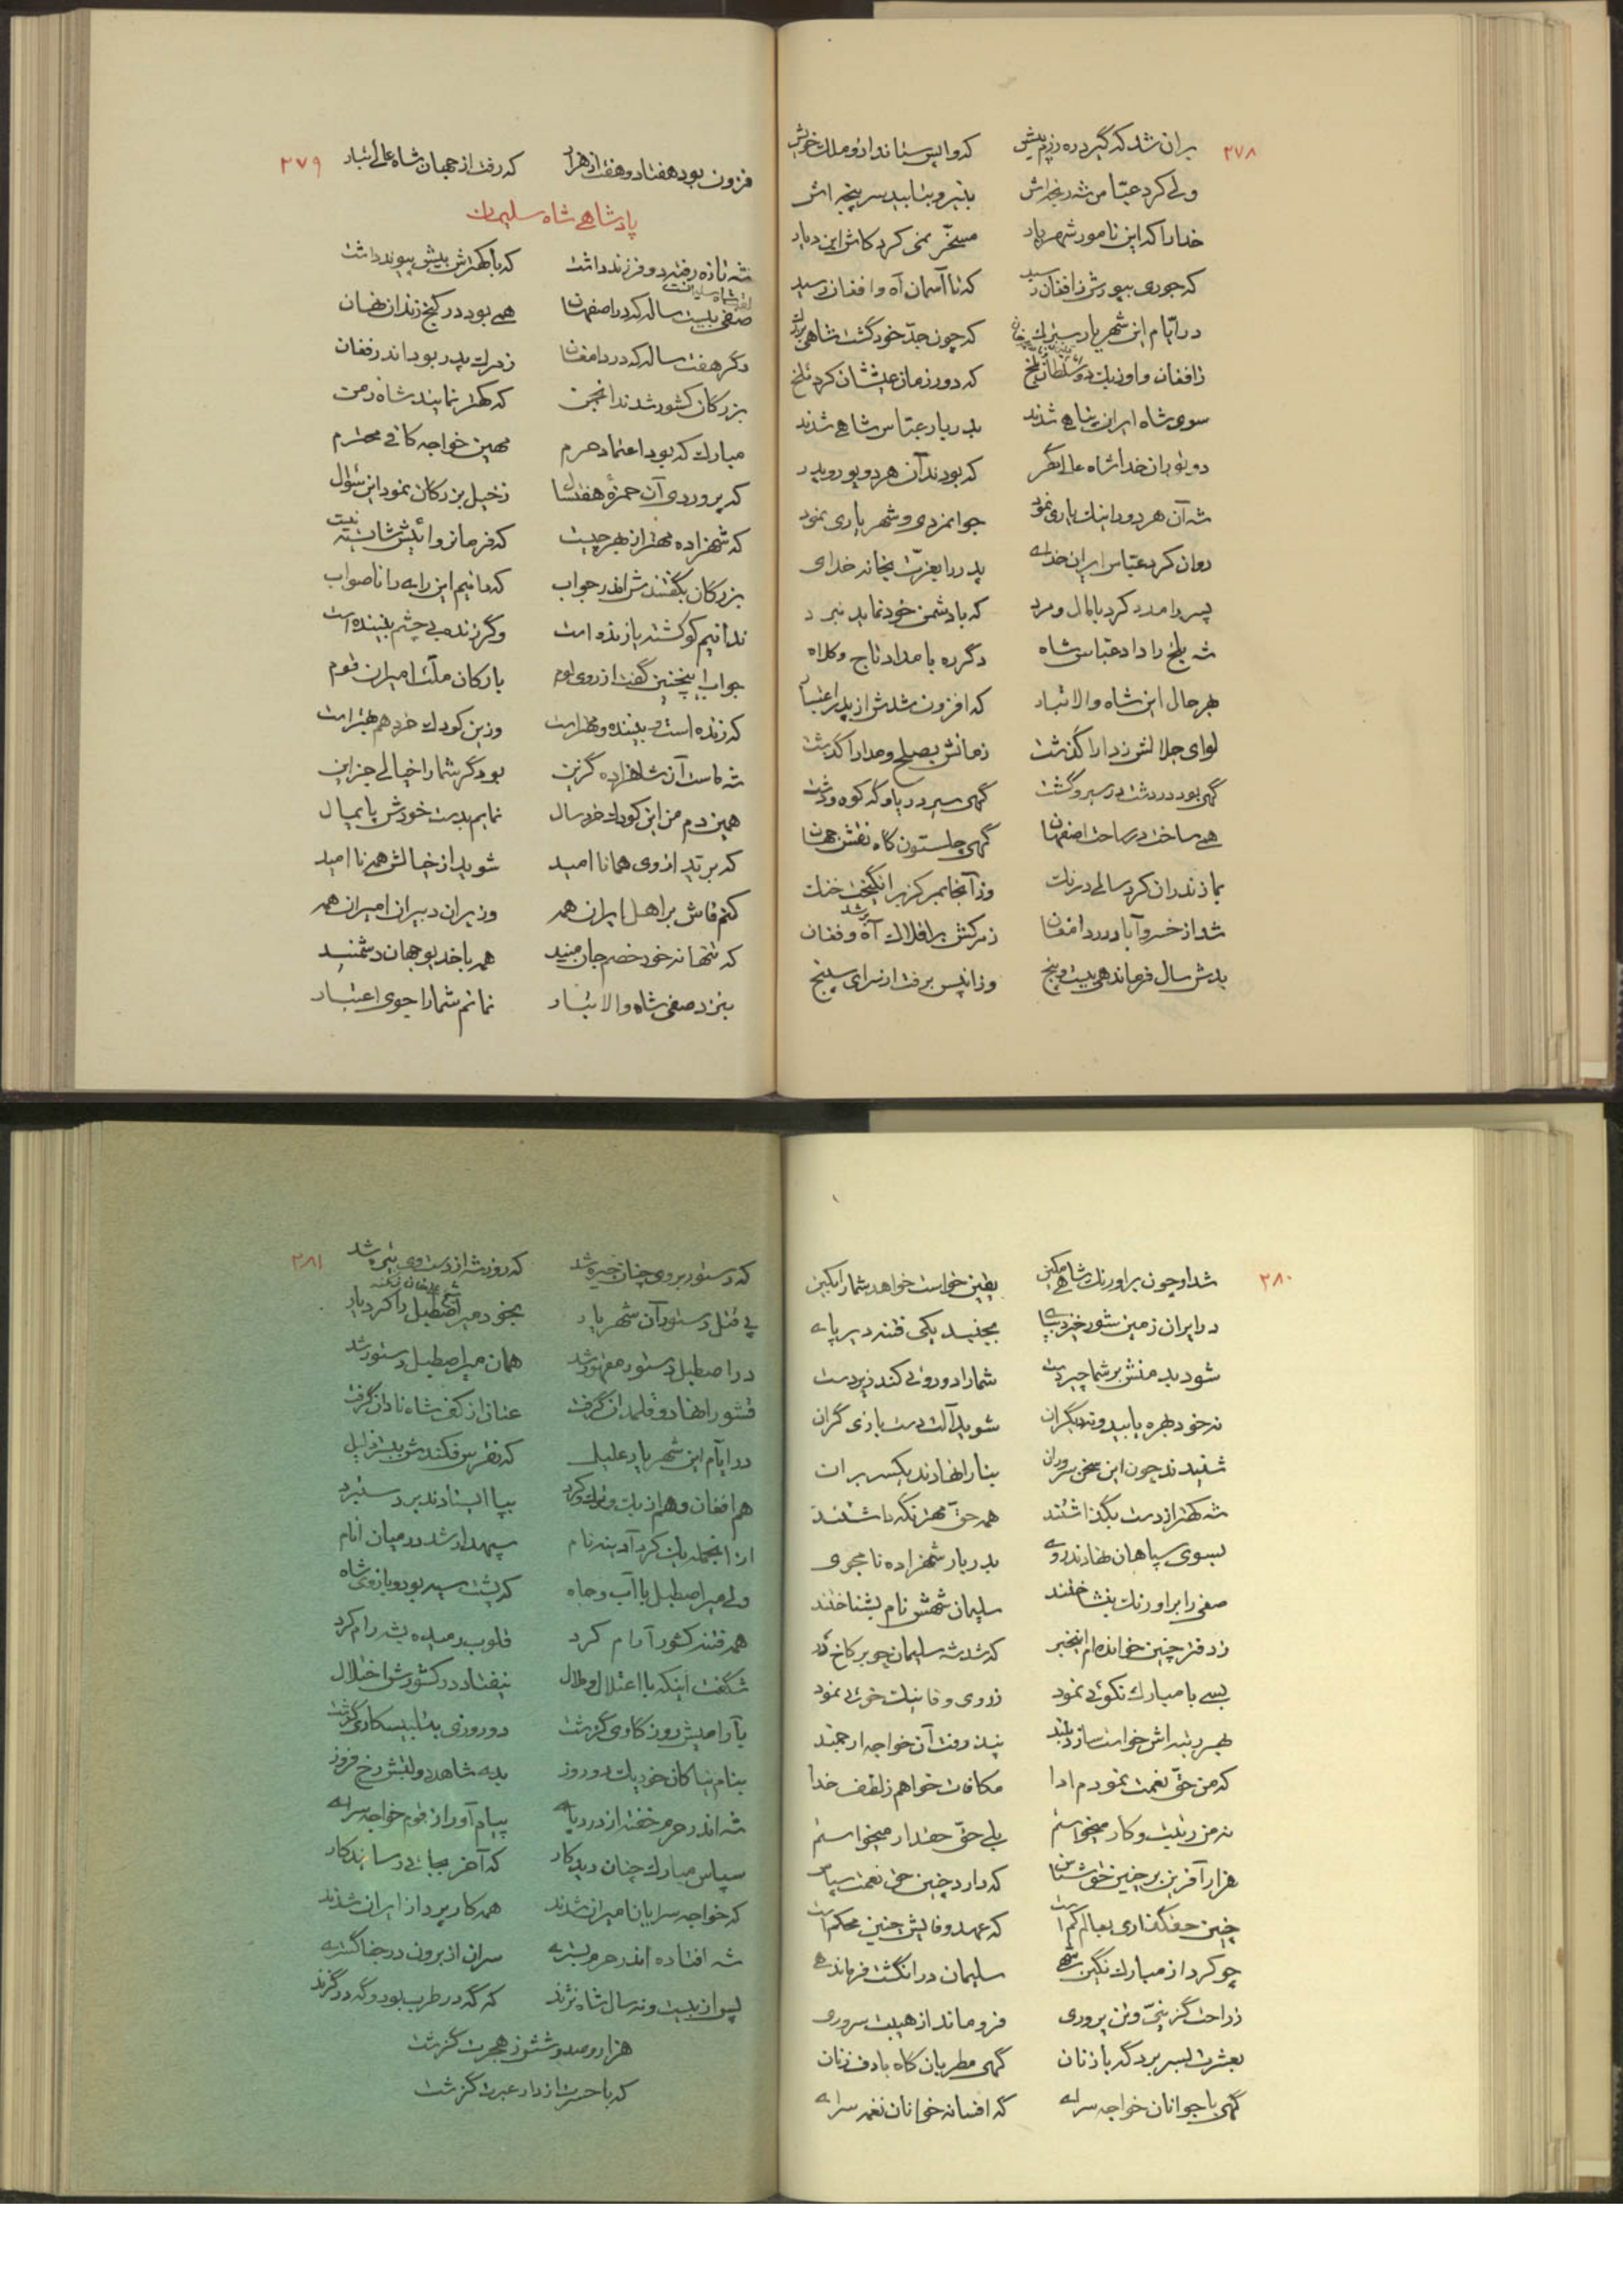 ۲۷۸
بران شد که گیرد ره رزم پیش که واپس ستاند ازو ملک خویش
ولی کرد عبّاس شه رنجه‌اش بنیرو بتابید سرپنجه‌اش
خدا را که این نامور شهریار مسخّر نمی کرد کاش این دیار
که جوری بپورش ز افغان رسید که تا آسمان آه و افغان رسید
در ایّام این شهریار سترک که چون جدّ خود گشت شاهی بزرک
ز افغان و اوزبک دو سلطان بلخ که دور زمان عیششان کرد تلخ
سوی شاه ایران پناهی شدند بدربار عبّاس شاهی شدند
دو بودن خدا شاه عالی گهر که بودند آن هر دو پور و پدر
شه آن هر دو را نیک یاری نمود جوانمردی و شهریاری نمود
روان کرد عبّاس ایران خدای پدر را بعزّت بخانه خدای
پسر را مدد کرد با مال و مرد که با دشمن خود نماید نبرد
شه بلخ را داد عبّاس شاه دگرره بامداد تاج و کلاه
بهر حال این شاه والا تبار که افزون شدش از پدر اعتبار
لوای جلالش ز دارا گذشت زمانش بصلح و مدارا گذشت
گهی بود در دشت در سیر و گشت گهی سیر دریا و گه کوه و دشت
همی ساخت در ساحت اصفهان گهی چلستون گاه نقش جهان
بمازندران کرد سالی درنک وز آنجا بمرکز برانگیخت خنک
شد از خسروآباد در دامغان ز مرکش بر افلاک آه و فغان
بدش سال فرماندهی بیست و پنج وزان پس برفت از سرای سپنج
۲۷۹
فزون بود هفتاد و هفت از هزار که رفت از جهان شاه عالی تبار
پادشاهی شاه سلیمان
شه تازه رفته دو فرزند داشت که با کهترش بیش پیوند داشت
صفی بیست ساله که در اصفهان همی بود در کنج زندان نهان
دگر هفت ساله که در دامغان ز مرک پدر بود اندر فغان
بزرکان کشور شدند انجمن که کهتر نمایند شاه زمن
مبارک که بود اعتماد حرم مهین خواجه کافی محترم
که پروردی آن حمزهٔ هفتسال ز خیل بزرکان نمود این سؤال
که شهزاده مهتر از بهر چیست که فرمانروائیش شایسته نیست
بزرکان بگفتندش اندر جواب که دانیم این رایه را ناصواب
ندانیم کو کشته یا زنده است وگر زنده بی چشم بیننده است
جواب اینچنین گفت از روی لوم بارکان ملّت امیران قوم
که زنده است و بیننده و مهتر است وزین کودک خرد هم بهتر است
شه ماست آن شاهزاده گزین بود گر شما را خیالی جز این
همین دم من این کودک خردسال نمایم بدست خودش پایمال
که برّید از وی همانا امید شوید از خیالش همه ناامید
کنم فاش بر اهل ایران همه وزیران دبیران امیران همه
که تنها نه خود خصم جان منید همه با خدیو جهان دشمنید
بنزد صفی شاه والا تبار نمانم شما را جوی اعتبار
۲۸۰
شد او چون بر اورنک شاهی مکین یقین خواست خواهد شما را بکین
در ایران زمین شور خیزد بپای بجنبد یکی فتنه دیرپای
شود بدمنش بر شما چیردست شما را دوروئی کند زیردست
نه خود بهره یابید و نه دیگران شوید آلت دست بازی گران
شنیدند چون این سخن سروران بناراه نهادند یکسر بران
شه کهتر از دست بگذاشتند همه حقّ مهتر نگه داشتند
بسوی سپاهان نهادند روی بدربار شهزاده نامجوی
صفی را بر اورنک بنشاختند سلیمان شهش نام بشناختند
ز دفتر چنین خوانده‌ام این خبر که شد شه سلیمان چو بر کاخ زر
بسی با مبارک نکوئی نمود ز روی وفا نیک خوئی نمود
بهر رتبه‌اش خواست سازد بلند نپذرفت آن خواجه ارجمند
که من حقّ نعمت نمودم ادا مکافات خواهم ز لطف خدا
نه من زینت و کار میخواستم بلی حقّ حقدار میخواستم
هزار آفرین بر چنین حق شناس که دارد چنین حقّ نعمت سپاس
چنین حقگذاری بعالم کم است که عهد وفایش چنین محکم است
چو کرد از مبارک نگین شهی سلیمان در انگشت فرماندهی
ز راحت گزینیّ و تن پروری فرو ماند از هیبت سروری
بعشرت بسر برد گه با زنان گهی مطربان گاه با دف زنان
گهی با جوانان خواجه سرای گه افسانه خوانان نغمه سرای
۲۸۱
که دستور بر وی چنان خیره شد که روز شه از دست وی تیره شد
پی قتل دستور آن شهریار بخود میر اصطبل را کرد یار
در اصطبل دستور مقهور شد همان میر اصطبل دستور شد
قشو را نهاد و قلمدان گرفت عنان از کف شاه نادان گرفت
در ایّام این شهریار علیل که نقرس فکندش ببستر ذلیل
هم افغان و هم ازبک و ترک و کرد بپا ایستادند بر دستبرد
از آنجمله یک کرد آدینه نام سپهدار شد در میان انام
ولی میر اصطبل با آب و جاه که پشت سپه بود و بازوی شاه
همه فتنه کشور آرام کرد قلوب رمیده بشه رام کرد
شگفت اینکه با اعتلال و ملال نیفتاد در کشورش اختلال
بآرامیش روزگاری گذشت دو روزی بتلبیس کاری گذشت
بنام نیاکان خود یک دو روز بدی شاهد دولتش رخ فروز
شه اندر حرم خفته از درد پای پیام آور از قوم خواجه سرای
سپاس مبارک چنان دید کار که آخر بجائی رسانید کار
که خواجه سرایان امیران شدند همه کارپرداز ایران شدند
شه افتاده اندر حرم بستری سران از برون در جفا گستری
پس از بیست و نه سال شاه نژند که گه در طرب بود و گه در گزند
هزار و صد و شش ز هجرت گذشت
که با حسرت از دار عبرت گذشت